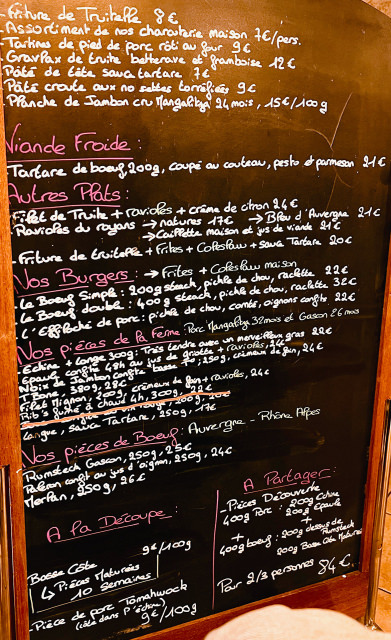 Friture de Truitelle 8€
- Assortiment de nos charcuterie maison 7€/pers.
- Tartines de pied de porc rôti au four 9€
- Gravlax de truite betterave et framboise 12€
- Pâté de tête sauce tartare 7€
- Pâté croute aux noisettes torréfiées 9€
- Planche de Jambon cru Mangalitza 24 mois, 15€/100g
Viande Froide :
- Tartare de boeuf 200g, coupé au couteau, pesto et parmesan 21€
Autres Plats :
- Filet de Truite + ravioles + crème de citron 24€
- Ravioles du royans → natures 17€ → Bleu d'Auvergne 21€
→ Caillette maison et jus de viande 21€
- Friture de truitelle + Frites + Coleslaw + sauce Tartare 20€
Nos Burgers : → Frites + Coleslaw maison
- Le Boeuf Simple : 200g steack, pickle de chou, raclette 22€
- Le Boeuf double : 400g steack, pickle de chou, raclette 32€
- L'Effiloché de porc : pickle de chou, comté, oignons confits 22€
Nos pièces de la ferme : Porc Mangalitza 32mois et Gascon 26 mois
- Echine + Longe 300g : Très tendre avec un merveilleux gras 22€
- Epaule confite 48h au jus de griotte + ravioles, 24€
- Noix de Jambon confite base T°, 250g, crémeux de foin, 24€
- T Bone, 380g, 28€
- Filet Mignon, 200g, crémeux de foin + ravioles, 24€
- Rib's fumé à chaud 4h, 300g, 22€
- Langue, sauce Tartare, 250g, 17€
Nos pièces de Boeuf : Auvergne - Rhône Alpes
- Rumsteck Gascon, 250g, 25€
- Paleron confit au jus d'oignon, 250g, 24€
- Merlan, 250g, 26€
A la Découpe :
Basse Côte 9€/100g
↳ Pièces Maturées
10 Semaines
- Pièce de porc Tomahawck
(côte dans l'échine)
9€/100g
A Partager :
- Pièces Découverte
400g Porc : 200g Echine
200g Epaule
+
400g boeuf : 200g dessus de Rumsteck
+
200g Basse Côte Maturée
Pour 2/3 personnes 84€